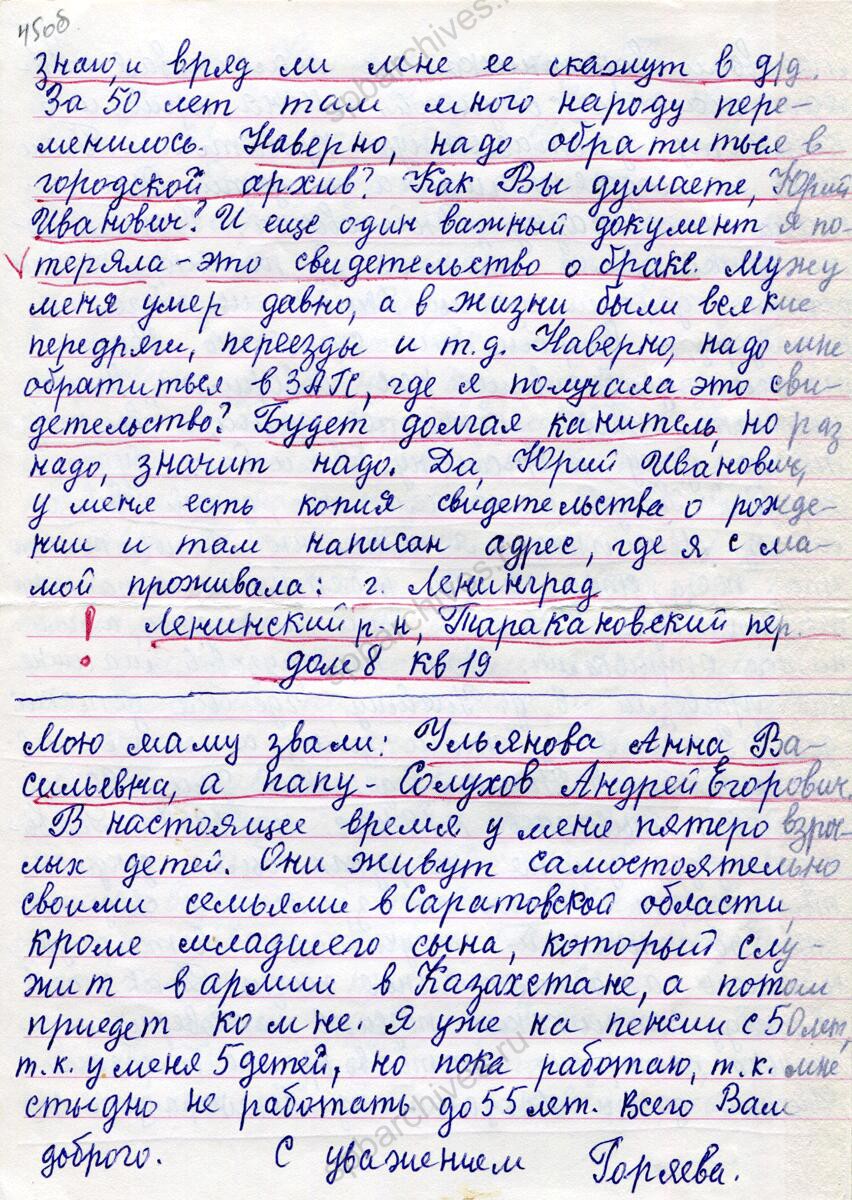 45об
знаю, и вряд ли мне ее скажут в д/д.
За 50 лет там много народу пере-
менилось. Наверно, надо обратиться в
городской архив? Как Вы думаете, Юрий
Иванович? И еще один важный документ я по-
теряла - это свидетельство о браке. Муж у
меня умер давно, а в жизни были всякие
передряги, переезды и т.д. Наверно, надо мне
обратиться в ЗАГС, где я получала это сви-
детельство? Будет долгая канитель, но раз
надо, значит надо. Да, Юрий Иванович,
у меня есть копия свидетельства о рожде-
нии и там написан адрес, где я с ма-
мой проживала: г. Ленинград
! Ленинский р-н, Таракановский пер.
дом 8 кв 19
Мою маму звали: Ульянова Анна Ва-
сильевна, а папу - Солухов Андрей Егорович.
В настоящее время у меня пятеро взрос-
лых детей. Они живут самостоятельно
своими семьями в Саратовской области,
кроме младшего сына, который слу-
жит в армии в Казахстане, а потом
приедет ко мне. Я уже на пенсии с 50 лет,
т.к. у меня 5 детей, но пока работаю, т.к. мне
стыдно не работать до 55 лет. Всего Вам
доброго. С уважением Горяева.
spbarchives.ru